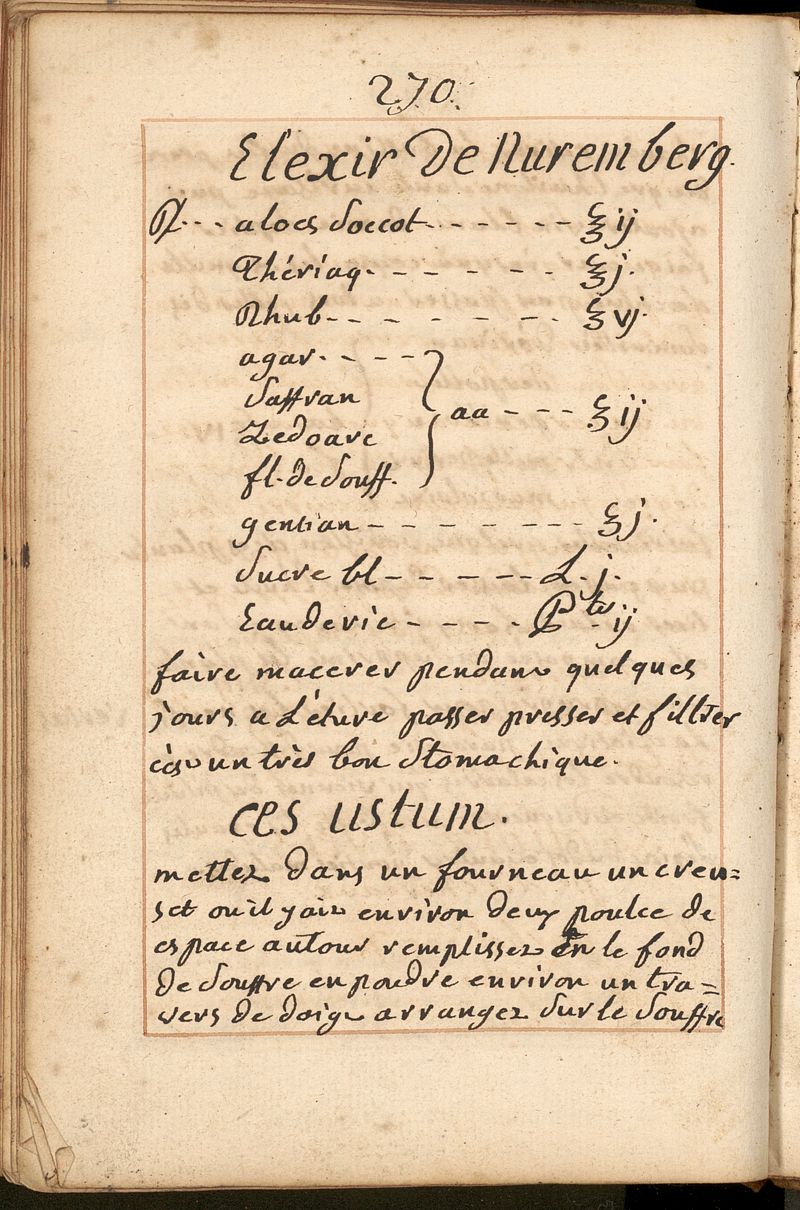 270.
Elexir De Nuremberg.
℞... aloes Soccot. - - - - - ℥ ij
Thériaq. - - - - - - ℥ j.
Rhub - - - - - - - ℥ vj.
agar. - - - -
Saffran
Zedoare
fl. de Souff. } aa - - - ℥ ij
gentian - - - - - - - ℥ j.
Sucre bl - - - - - - L. j.
Eau de vie - - - - . Pte ij
faire macerer pendant quelques
jours a L'étuve passer presser et filltrer
c'est un très bon Stomachique.
ces ustum.
mettez dans un fourneau un creu=
set ou il y ait environ deux poulce de
espace autour remplissez en le fond
de Souffre en poudre environ un tra=
vers de doigt arrangez Sur le Souffre